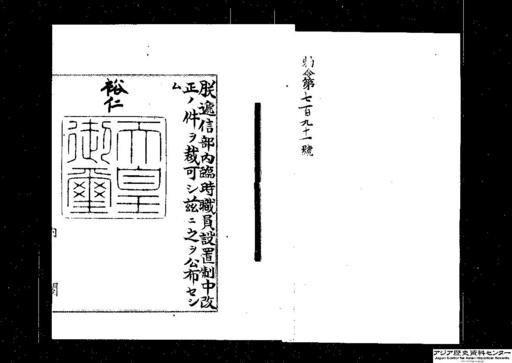 勅令第七百九十一號
朕遞信部內臨時職員設置制中改
正ノ件ヲ裁可シ茲ニ之ヲ公布セシ
ム
裕仁
天皇
御璽
內閣
アジア歴史資料センター
Japan Center for Asian Historical Records